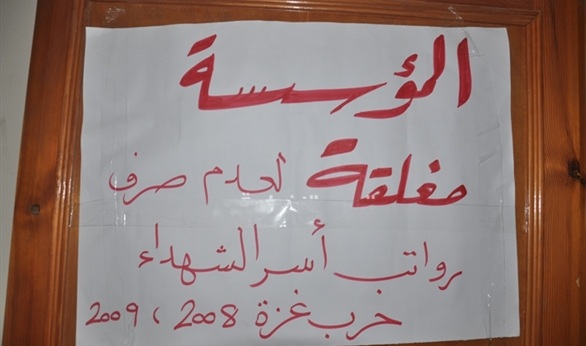 المؤسسة
مغلقة لعدم صرف
رواتب أسر الشهداء
حرب غزة 2008 ، 2009